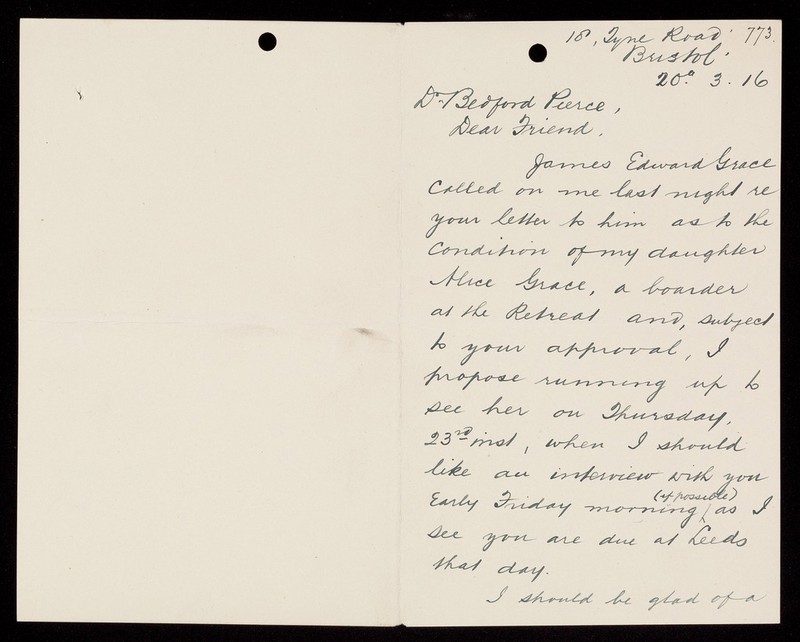 18, Tyne Road. 773.
Bristol.
20. 3. 16
Dr. Bedford Pierce,
Dear Friend.
James Edward Grace
called on me last night re
your letter to him as to the
condition of my daughter
Alice Grace, a boarder
at the Retreat and, subject
to your approval, I
propose running up to
see her on Thursday,
23rd inst, when I should
like an interview with you
(if possible)
Early Friday morning as I
see you are due at Leeds
that day.
I should be glad of a